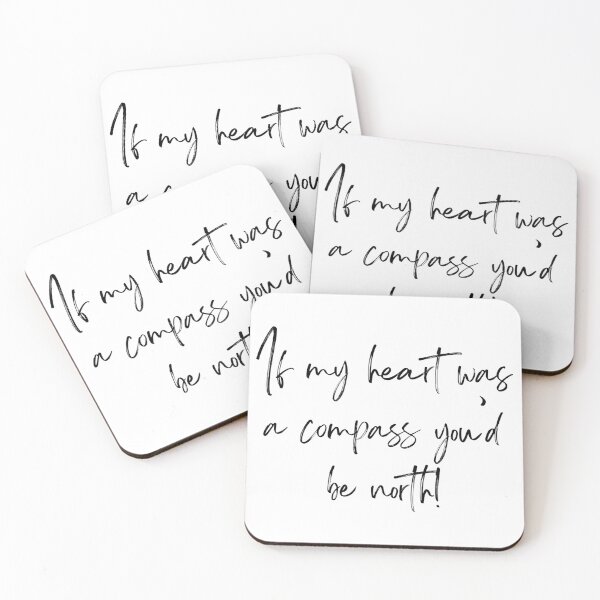 If my heart was
a
If my heart was
a compass you'd
If my heart was
a compass you'd
be
If my heart was
a compass you'd
be north!